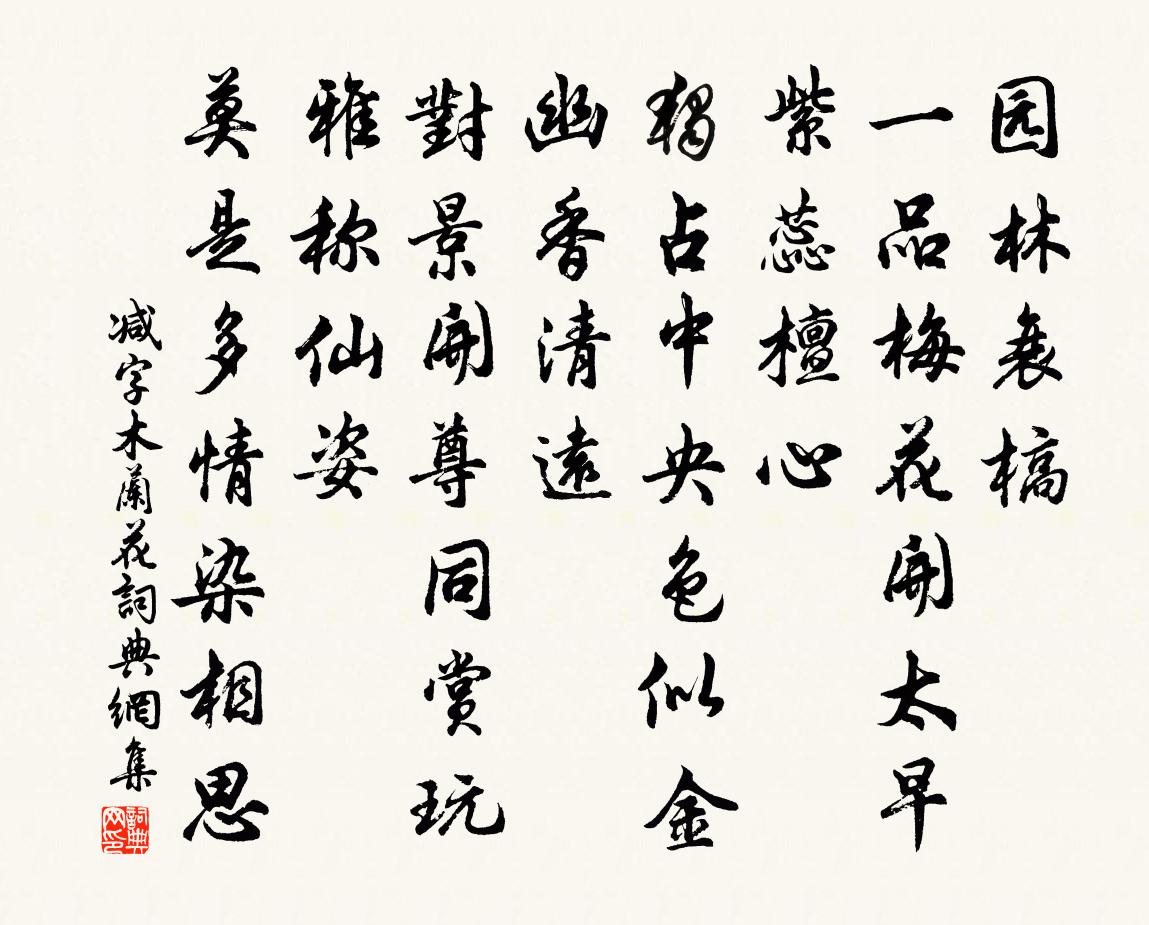 园林衰槁
一品梅花開太早
紫蕊檀心
獨占中央色似金
幽香清遠
對景開尊同賞玩
雅称仙姿
莫是多情染相思
减字木蘭花詞典網集
詞典网印